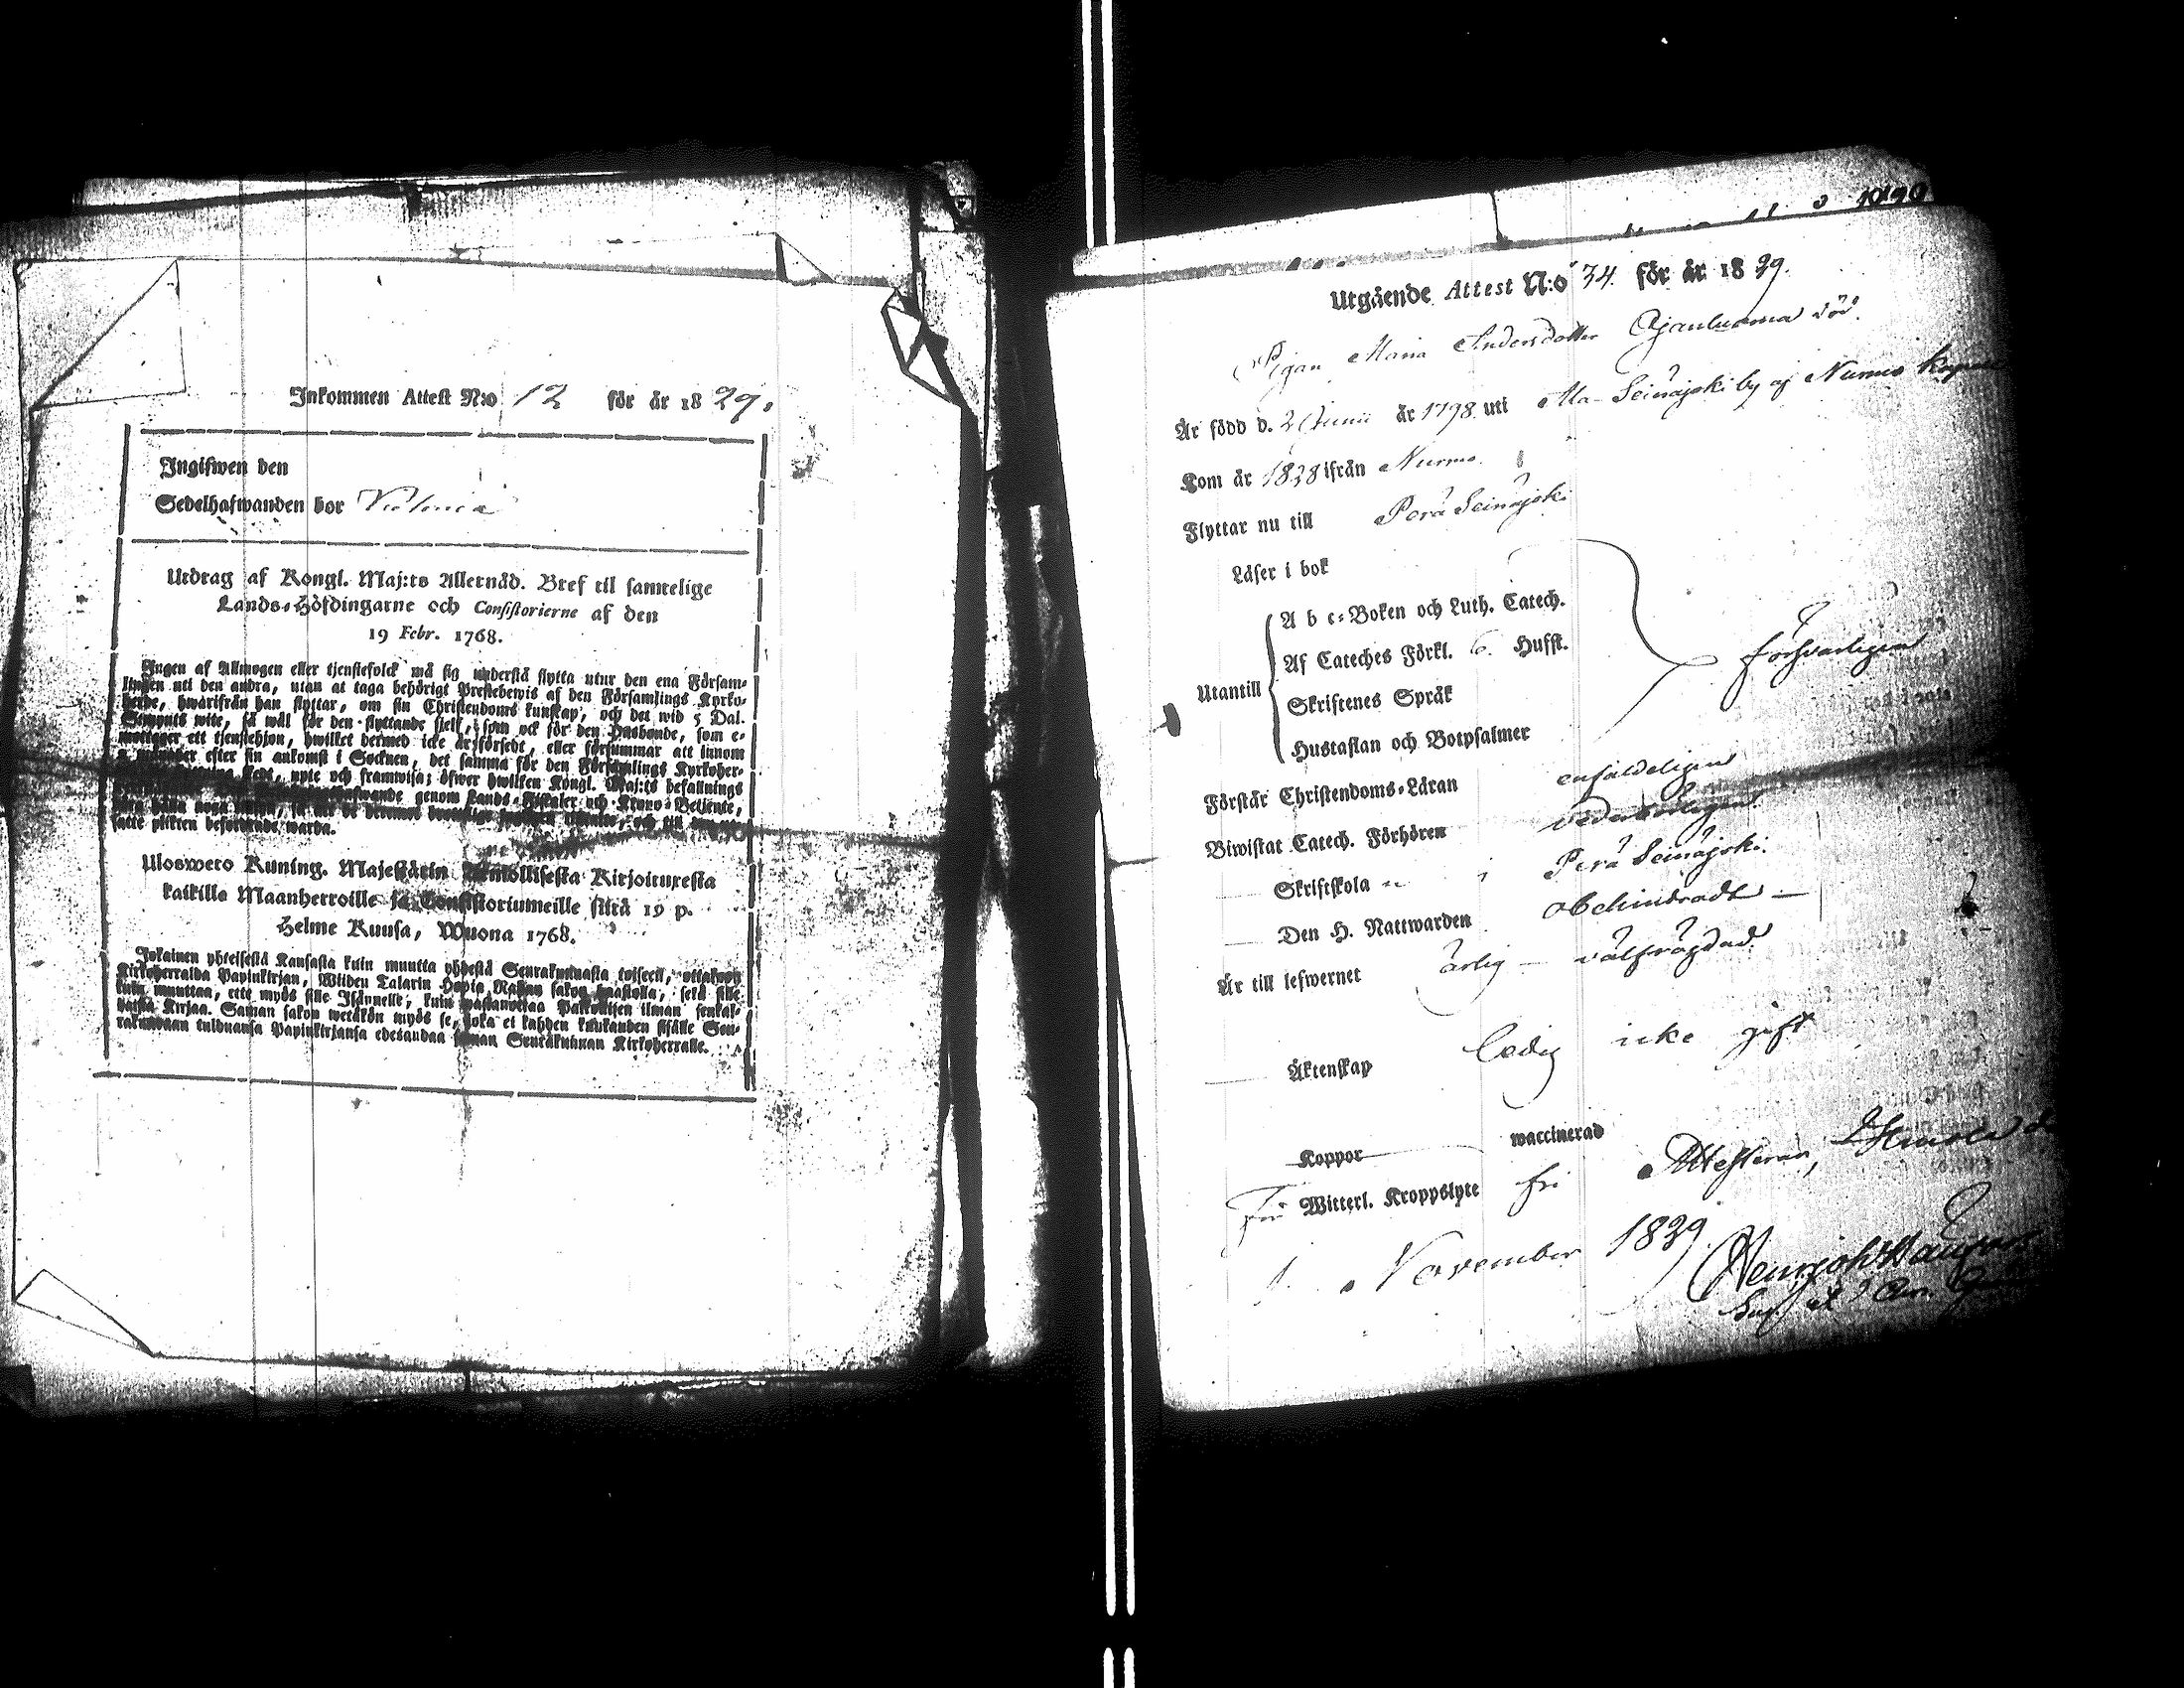 Inkommen Attest N:o 12 för år 1829.
Ingifwen den
Sedelhafwanden bor
Utdrag af Kongl. Maj:ts Allernåd. Bref til samtelige
Lands-Höfdingarne och Consistorierne af den
19 Febr. 1768.
Ingen af Allmogen eller tjenstefolck må sig understå flytta utur den ena Försam-
lingen uti den andra, utan at taga behörigt Prestebewis af den Församlings Kyrko-
herde, hwarifrån han flyttar, om sin Christendoms kunskap, och det wid 5 Dal.
Silfwermynts wite, så wäl för den flyttande sjelf, som ock för den Husbonde, som e-
mottager ett tjenstehjon, hwilket dermed icke är försedt, eller försummar att innom
månader efter sin ankomst i Socknen, det samma för den Församlings Kyrkoher-
upte och framwisa; öfwer hwilken Kongl. Maj:ts befallnings
genom Lands-Fiskaler och Krono-Betjente,
satte plikten befordrade warda.
Ulosweto Kuning. Majestätin Armollisesta Kirjoituxesta
kaikille Maanherroille ja Consistoriumeille siitä 19 p.
Helme Kuusa, Wuona 1768.
Jokainen yhteisestä Kansasta kuin muutta yhdestä Seurakunnasta toiseen, ottakoon
Kirkoherralda Papinkirjan, Wiiden Talarin Hopia Rahan sakon haastolla, sekä sille
kuin muuttaa, että myös sille Isännelle, kuin wastanottaa Palkollisen ilman senkal-
daista Kirjaa. Saman sakon wetäkön myös se, joka ei kahden kuukauden sisälle Seu-
rakundaan tulduansa Papinkirjansa edesanda saman Seurakunnan Kirkoherralle.
Utgående Attest N:o 34. för år 1829.
Pigan Maria Andersdotter Ajanluoma
Är född d. 2 Junii år 1798 uti Ala-Seinäjoki by af Nurmo
Kom år 1828 ifrån Nurmo.
Flyttar nu till Perä Seinäjoki
Läser i bok
Utantill
A b c-Boken och Luth. Catech.
Af Cateches Förkl. 6. Hufst.
försvarligen
Skriftenes Språk
Hustaflan och Botpsalmer
Förstår Christendoms-Läran enfaldeligen
Biwistat Catech. Förhören vederbörligen
Skriftskola i Perä Seinäjoki.
Den H. Nattwarden obehindradt
Är till lefwernet ärlig välfrägdad
Äktenskap ledig icke gift
Koppor waccinerad
För Witterl. Kroppslyte fri Attesterar,
1. November 1829.